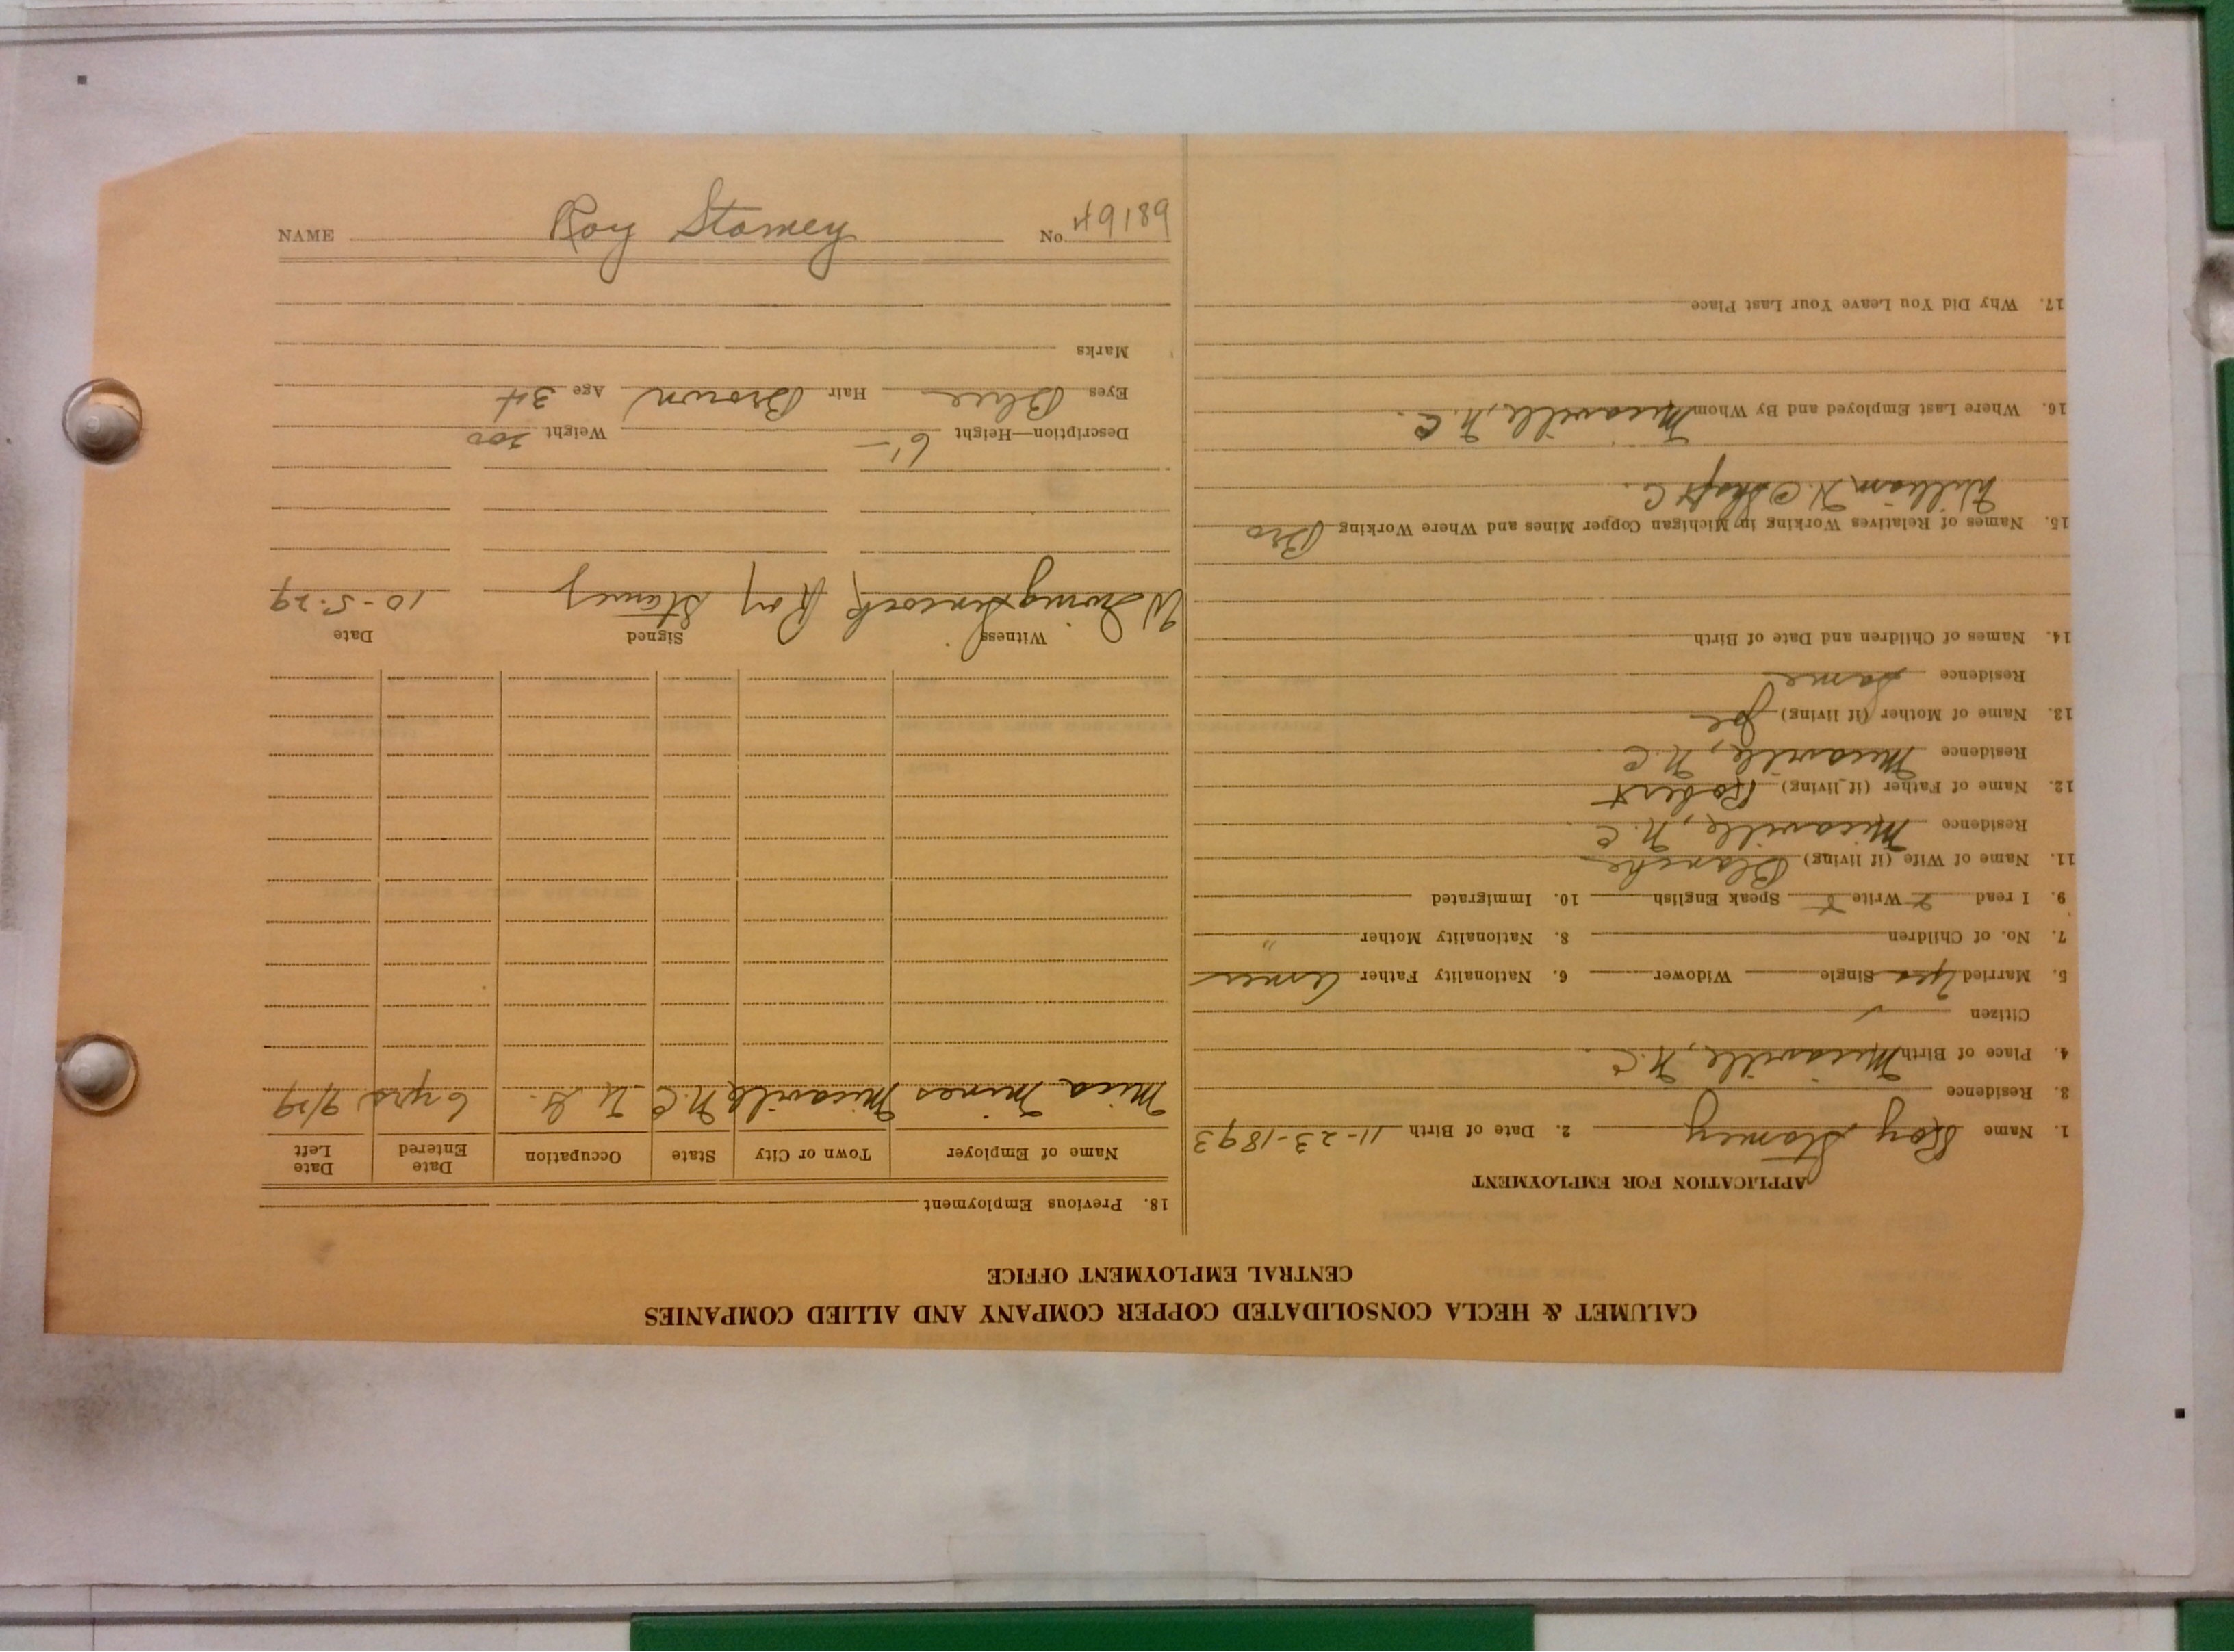 CALUMET & HECLA CONSOLIDATED COPPER COMPANY AND ALLIED COMPANIES
CENTRAL EMPLOYMENT OFFICE
APPLICATION FOR EMPLOYMENT
1. Name Roy Stamey 2. Date of Birth 11-23-1893
3. Residence
4. Place of Birth Micaville, N.C.
Citizen ✓
5. Married Yes Single Widower 6. Nationality Father Amer
7. No. of Children 8. Nationality Mother "
9. I read x Write x Speak English 10. Immigrated
11. Name of Wife (if living) Blanche
Residence Micaville, N.C.
12. Name of Father (if living) Robert
Residence Micaville, N.C.
13. Name of Mother (if living)
Residence Same
14. Names of Children and Date of Birth
15. Names of Relatives Working in Michigan Copper Mines and Where Working Bro
William N.C. Shaft C.
16. Where Last Employed and By Whom Micaville, N.C.
17. Why Did You Leave Your Last Place
18. Previous Employment
Name of Employer Town or City State Occupation Date Entered Date Left
Mica Mines Micaville N.C. U.G. 6 yrs 9/29
Witness Signed Date
W Roy Stamey 10-5-29
Description—Height 6'- Weight 200
Eyes Blue Hair Brown Age 34
Marks
NAME Roy Stamey No. 49189